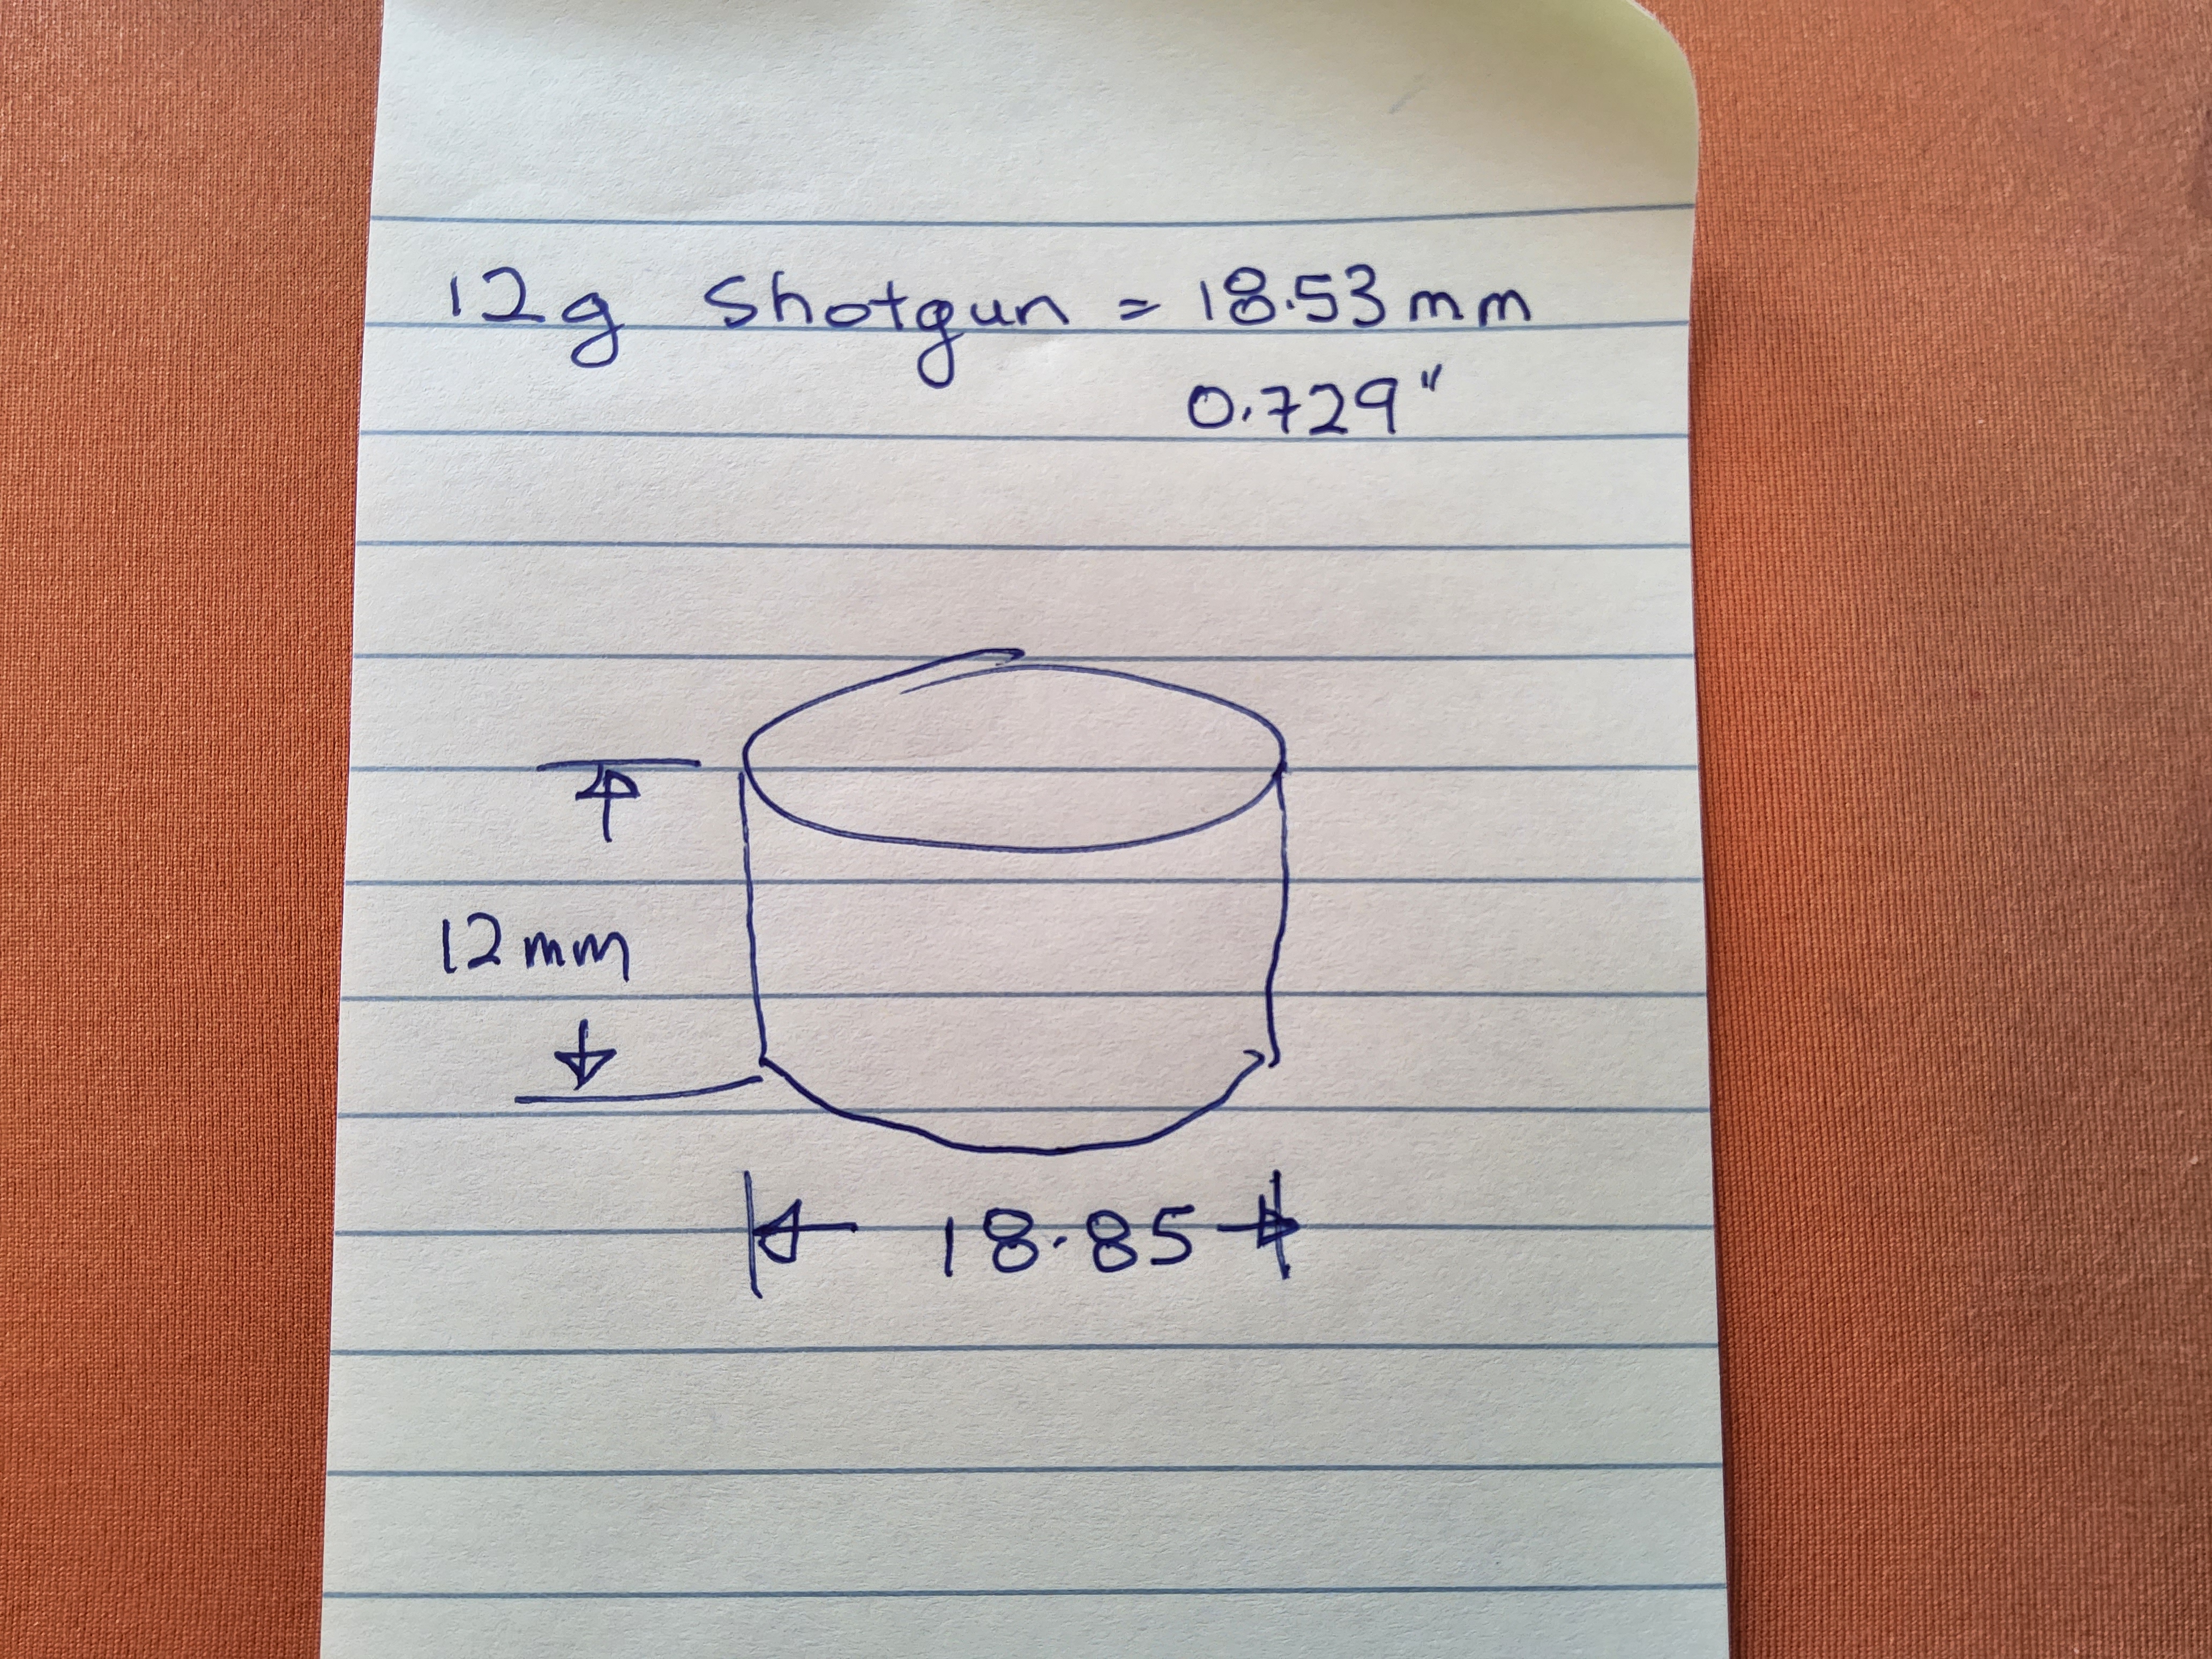 12g Shotgun = 18.53mm
0.729"
12mm
18.85